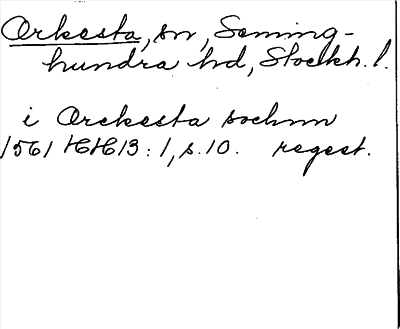 Orkesta, sn, Seming-
hundra hd, Stockh. l.
i Orekesta sochnn
1561 HH13:1, s. 10. regest.